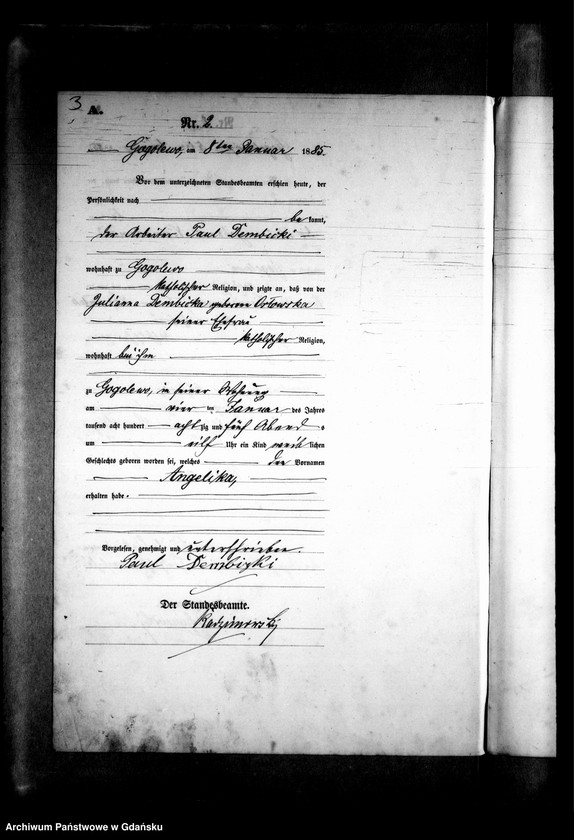 3
A.
Nr. 2.
Gogolewo, am 8ten Januar 1885.
Vor dem unterzeichneten Standesbeamten erschien heute, der
Persönlichkeit nach
be kannt,
der Arbeiter Paul Dembicki
wohnhaft zu Gogolewo
katholischer Religion, und zeigte an, daß von der
Julianna Dembicka geborene Orłowska
seiner Ehefrau
katholischer Religion,
wohnhaft bei ihm
zu Gogolewo, in seiner Wohnung
am vier ten Januar des Jahres
tausend acht hundert acht zig und fünf Abend s
um eilf Uhr ein Kind weib lichen
Geschlechts geboren worden sei, welches den Vornamen
Angelika,
erhalten habe.
Vorgelesen, genehmigt und unterschrieben.
Paul Dembicki
Der Standesbeamte.
Archiwum Państwowe w Gdańsku